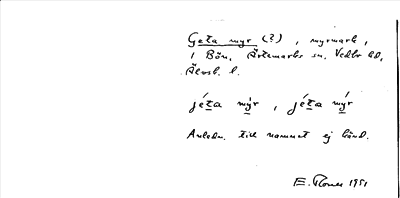 Geta myr (?), myrmark,
i Bön, Ärtemarks sn, Vedbo hd,
Älvsb. l.
jéta mỳr, jéta mýr
Anledn. till namnet ej känd.
E. 1951